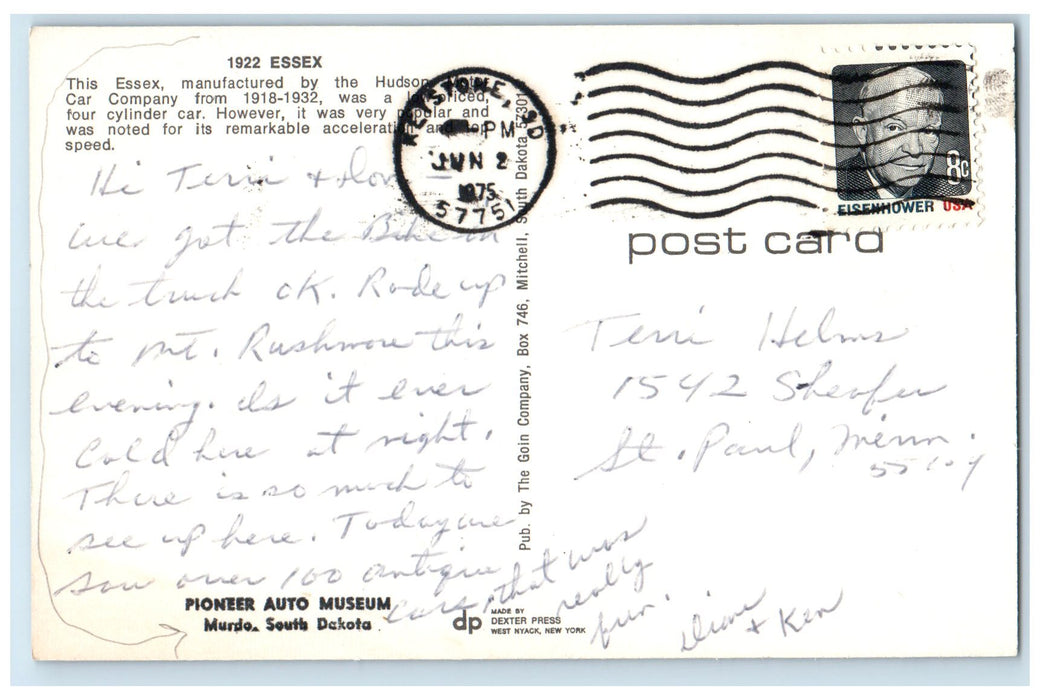 1922 ESSEX
This Essex, manufactured by the Hudson Motor
Car Company from 1918-1932, was a priced,
four cylinder car. However, it was very popular and
was noted for its remarkable acceleration and top
speed.
Hi Terri +
we got the Bike in
the truck OK. Rode up
to Mt. Rushmore this
evening. Is it ever
Cold here at night.
There is so much to
see up here. Today we
saw over 100 antique
cars, that was
really
fun.
Diane
+ Ken
PIONEER AUTO MUSEUM
Murdo, South Dakota
Pub. by The Goin Company, Box 746, Mitchell, South Dakota 57301
dp MADE BY
DEXTER PRESS
WEST NYACK, NEW YORK
KEYSTONE, SD
PM
JUN 2
1975
57751
8c
EISENHOWER USA
post card
Terri Helms
1542 Sheafer
St. Paul, Minn.
55104